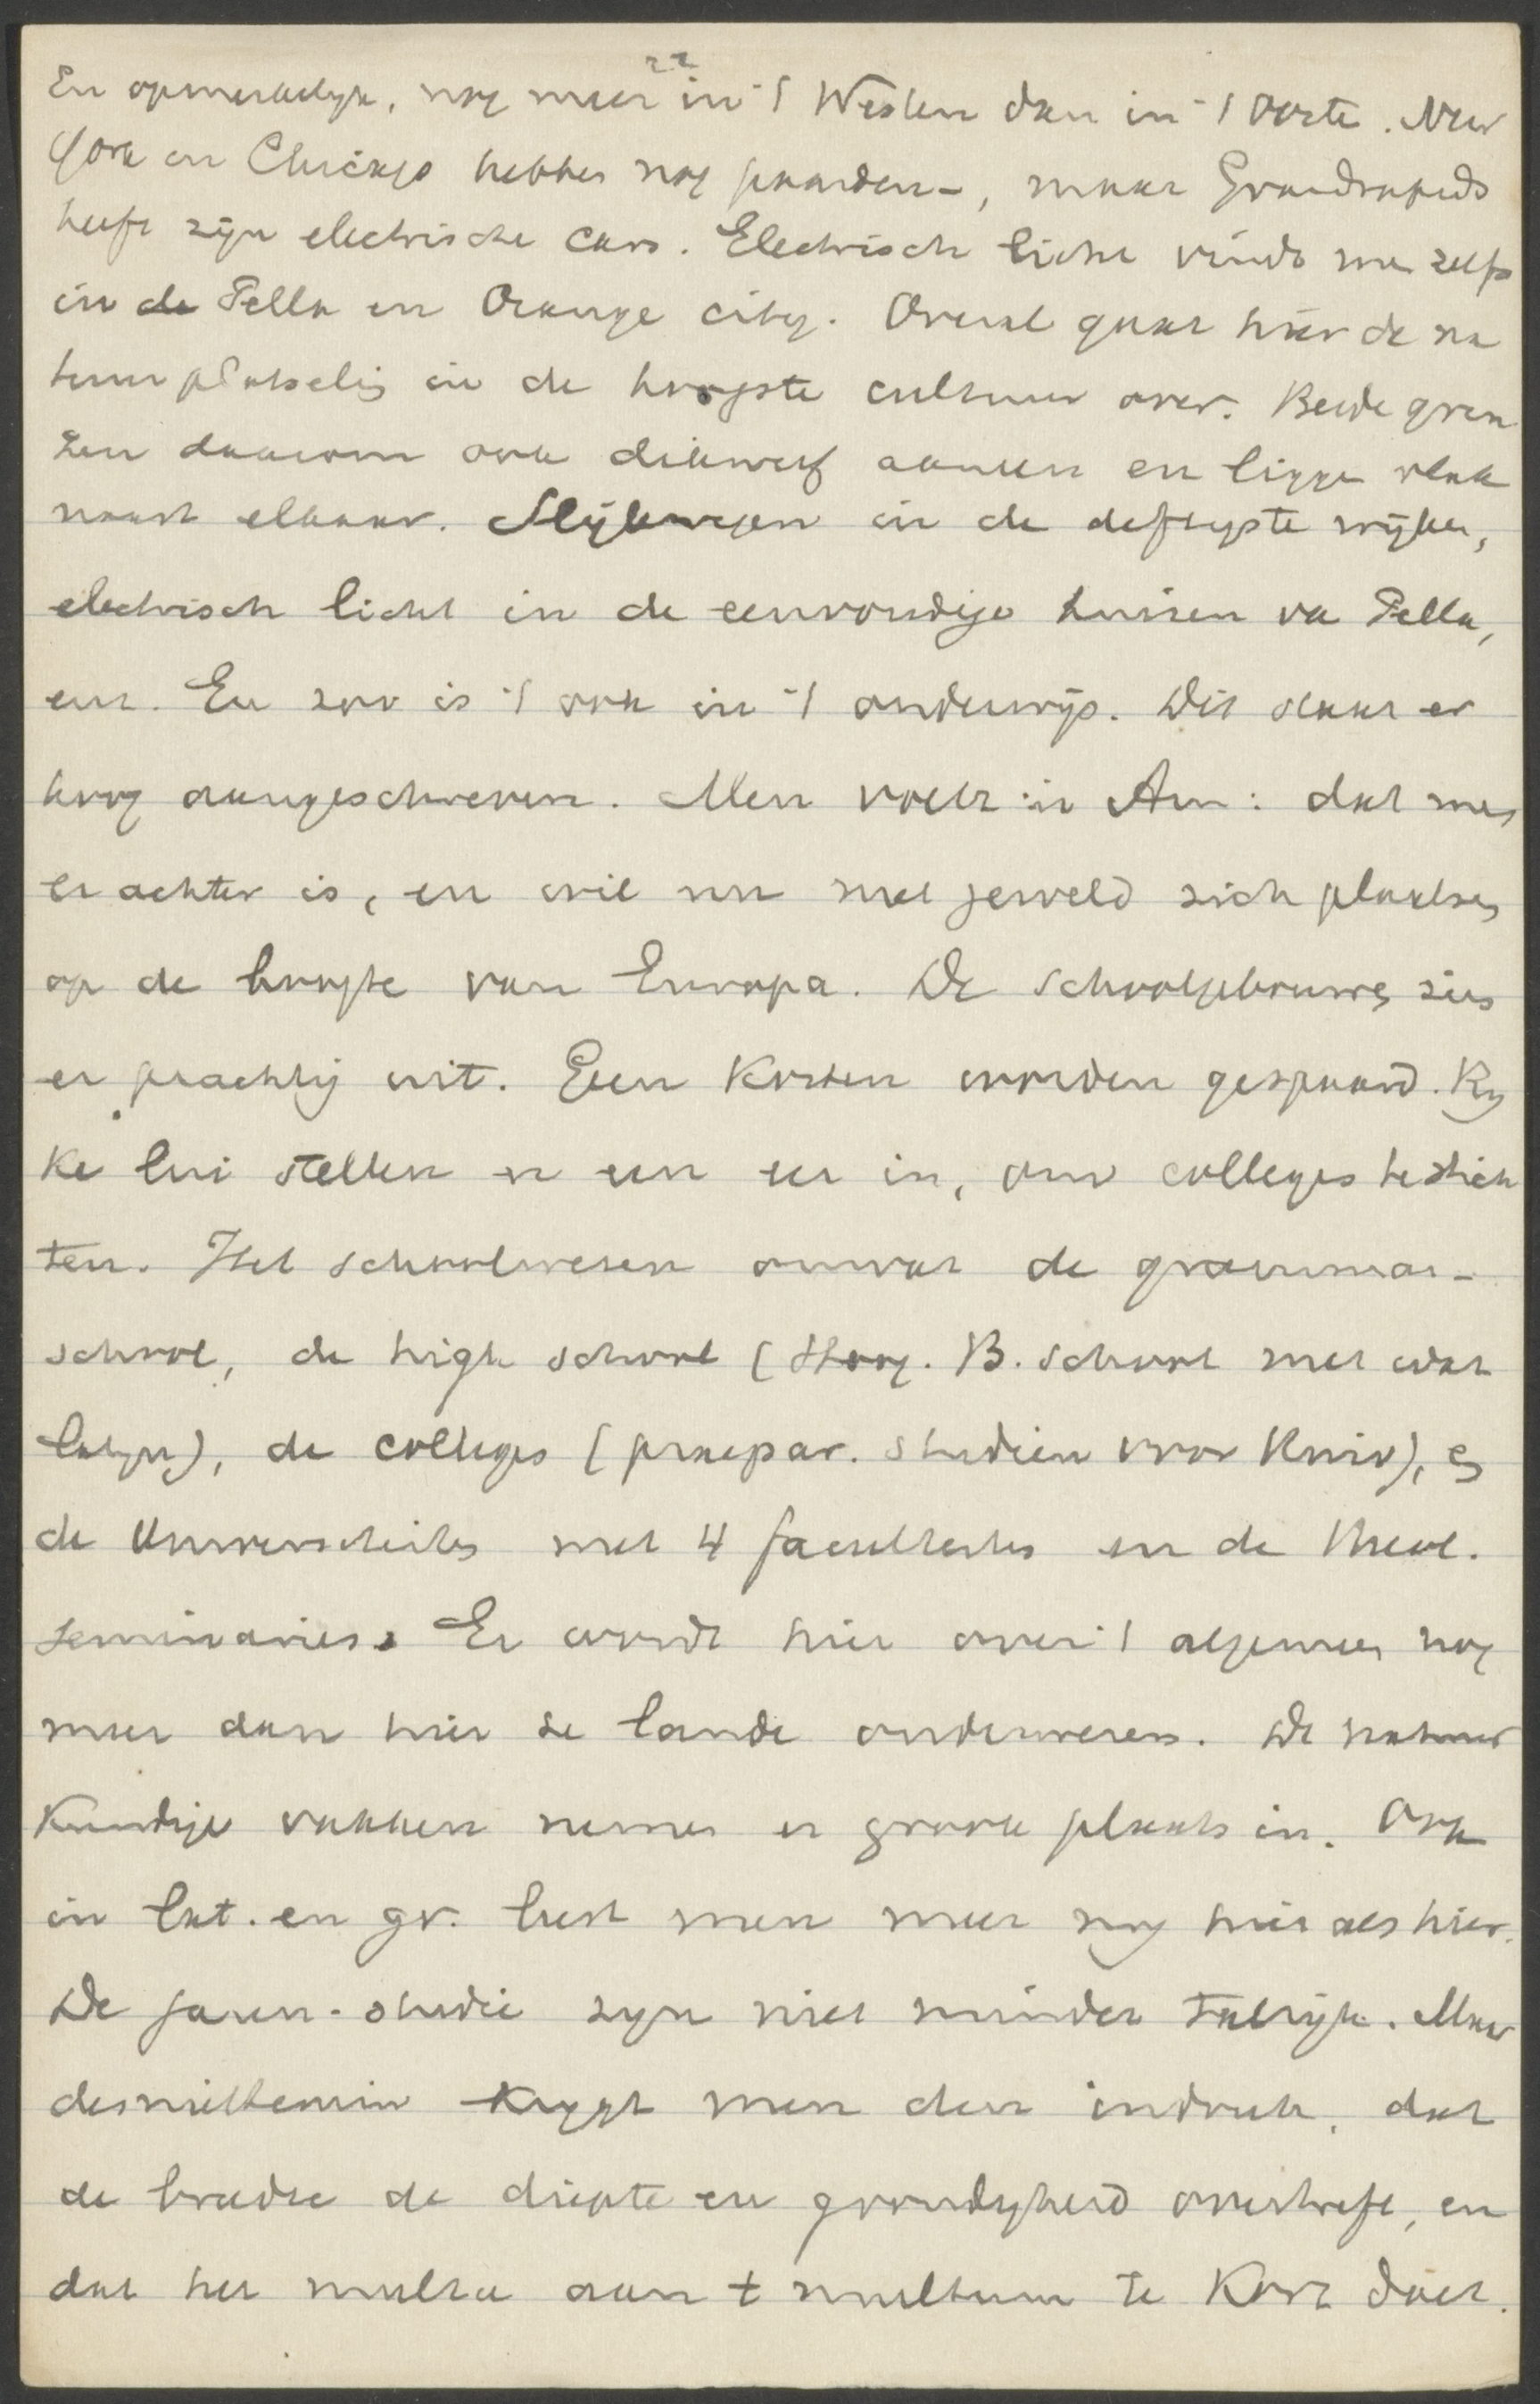 22
En opmerkelyk, nog meer in 't Westen dan in 't Ooste. New
York en Chicago hebben nog paarden-, maar Grandrapids
heeft zijn electrische cars. Electrisch licht vindt men zelfs
in de Pella en Orange city. Overal gaat hier de na
tuur plotselig in de hoogste cultuur over. Beide gren
zen daarom ook dikwerf aaneen en ligge vlak
naast elkaar. Slijkwegen in de deftigste wijken,
electrisch licht in de eenvoudige huizen va Pella,
enz. En zoo is 't ook in 't onderwijs. Dit staat er
hoog aangeschreven. Men voelt in Am: dat men
er achter is, en wil nu met geweld zich plaatsen
op de hoogte van Europa. De schoolgebouwen zien
er prachtig uit. Geen kosten worden gespaard. Ry
ke lui stellen er een eer in, om colleges te stich
ten. Het schoolwezen omvat de grammar-
school, de high school (Hoog. B. school met wat
latyn), de colleges (praepar. studien voor Univ), en
de Universiteiten met 4 faculteiten en de theol.
seminaries. Er wordt hier over 't algemeen nog
meer dan hier te lande onderwezen. De natuur
kundige vakken nemen er groote plaats in. Ook
in lat. en gr. leest men meer nog hier als hier.
De jaren-studie zyn niet minder talrijk. Maar
desniettemin krygt men den indruk, dat
de breedte de diepte en grondigheid overtreft, en
dat het multa aan t multum te kort doet.